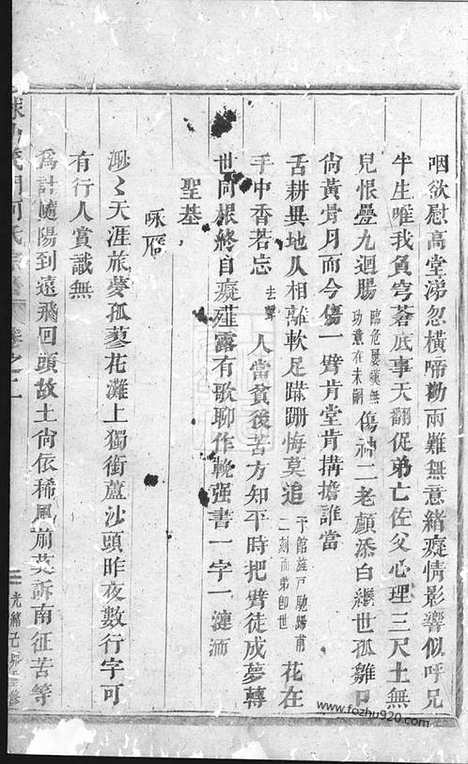 咽欲慰高堂涕忽橫啼勸兩難無意緒癡情影響似呼兄
半生唯我負穹蒼底事天翻促弟亡佐父心理三尺土無
兒恨疊九迴腸臨危屢嘆無功意在未嗣傷神二老顏添白繼世孤雛
尙黃骨月而今傷一臂肯堂肯搆擔誰當
舌耕異地人相離軟足蹣跚悔莫追下館雄戸馳歸甫二刻而弟卽世花在
手中香若忘去聲人當貧後苦方知平時把臂徒成夢轉
世同根終自癡薤露有歌聊作輓强書一字一漣洏
聖基
咏雁
渺々天涯旅夢孤蓼花灘上獨銜蘆沙頭昨夜數行字可
有行人賞識無
爲計隨陽到遠飛回頭故土尙依稀風前莫訴南征苦等
氏宗譜
卷之二
光緒乙
www.fozhu920.com